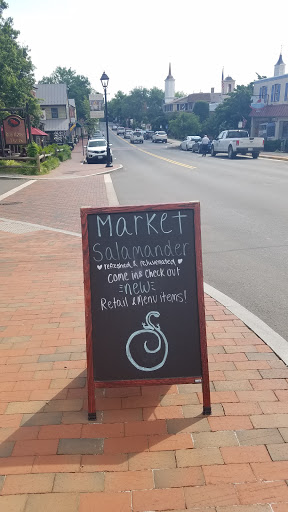 Market
Salamander
♥ refreshed & rejuvenated ♥
Come in & Check out
=new=
Retail & Menu items!